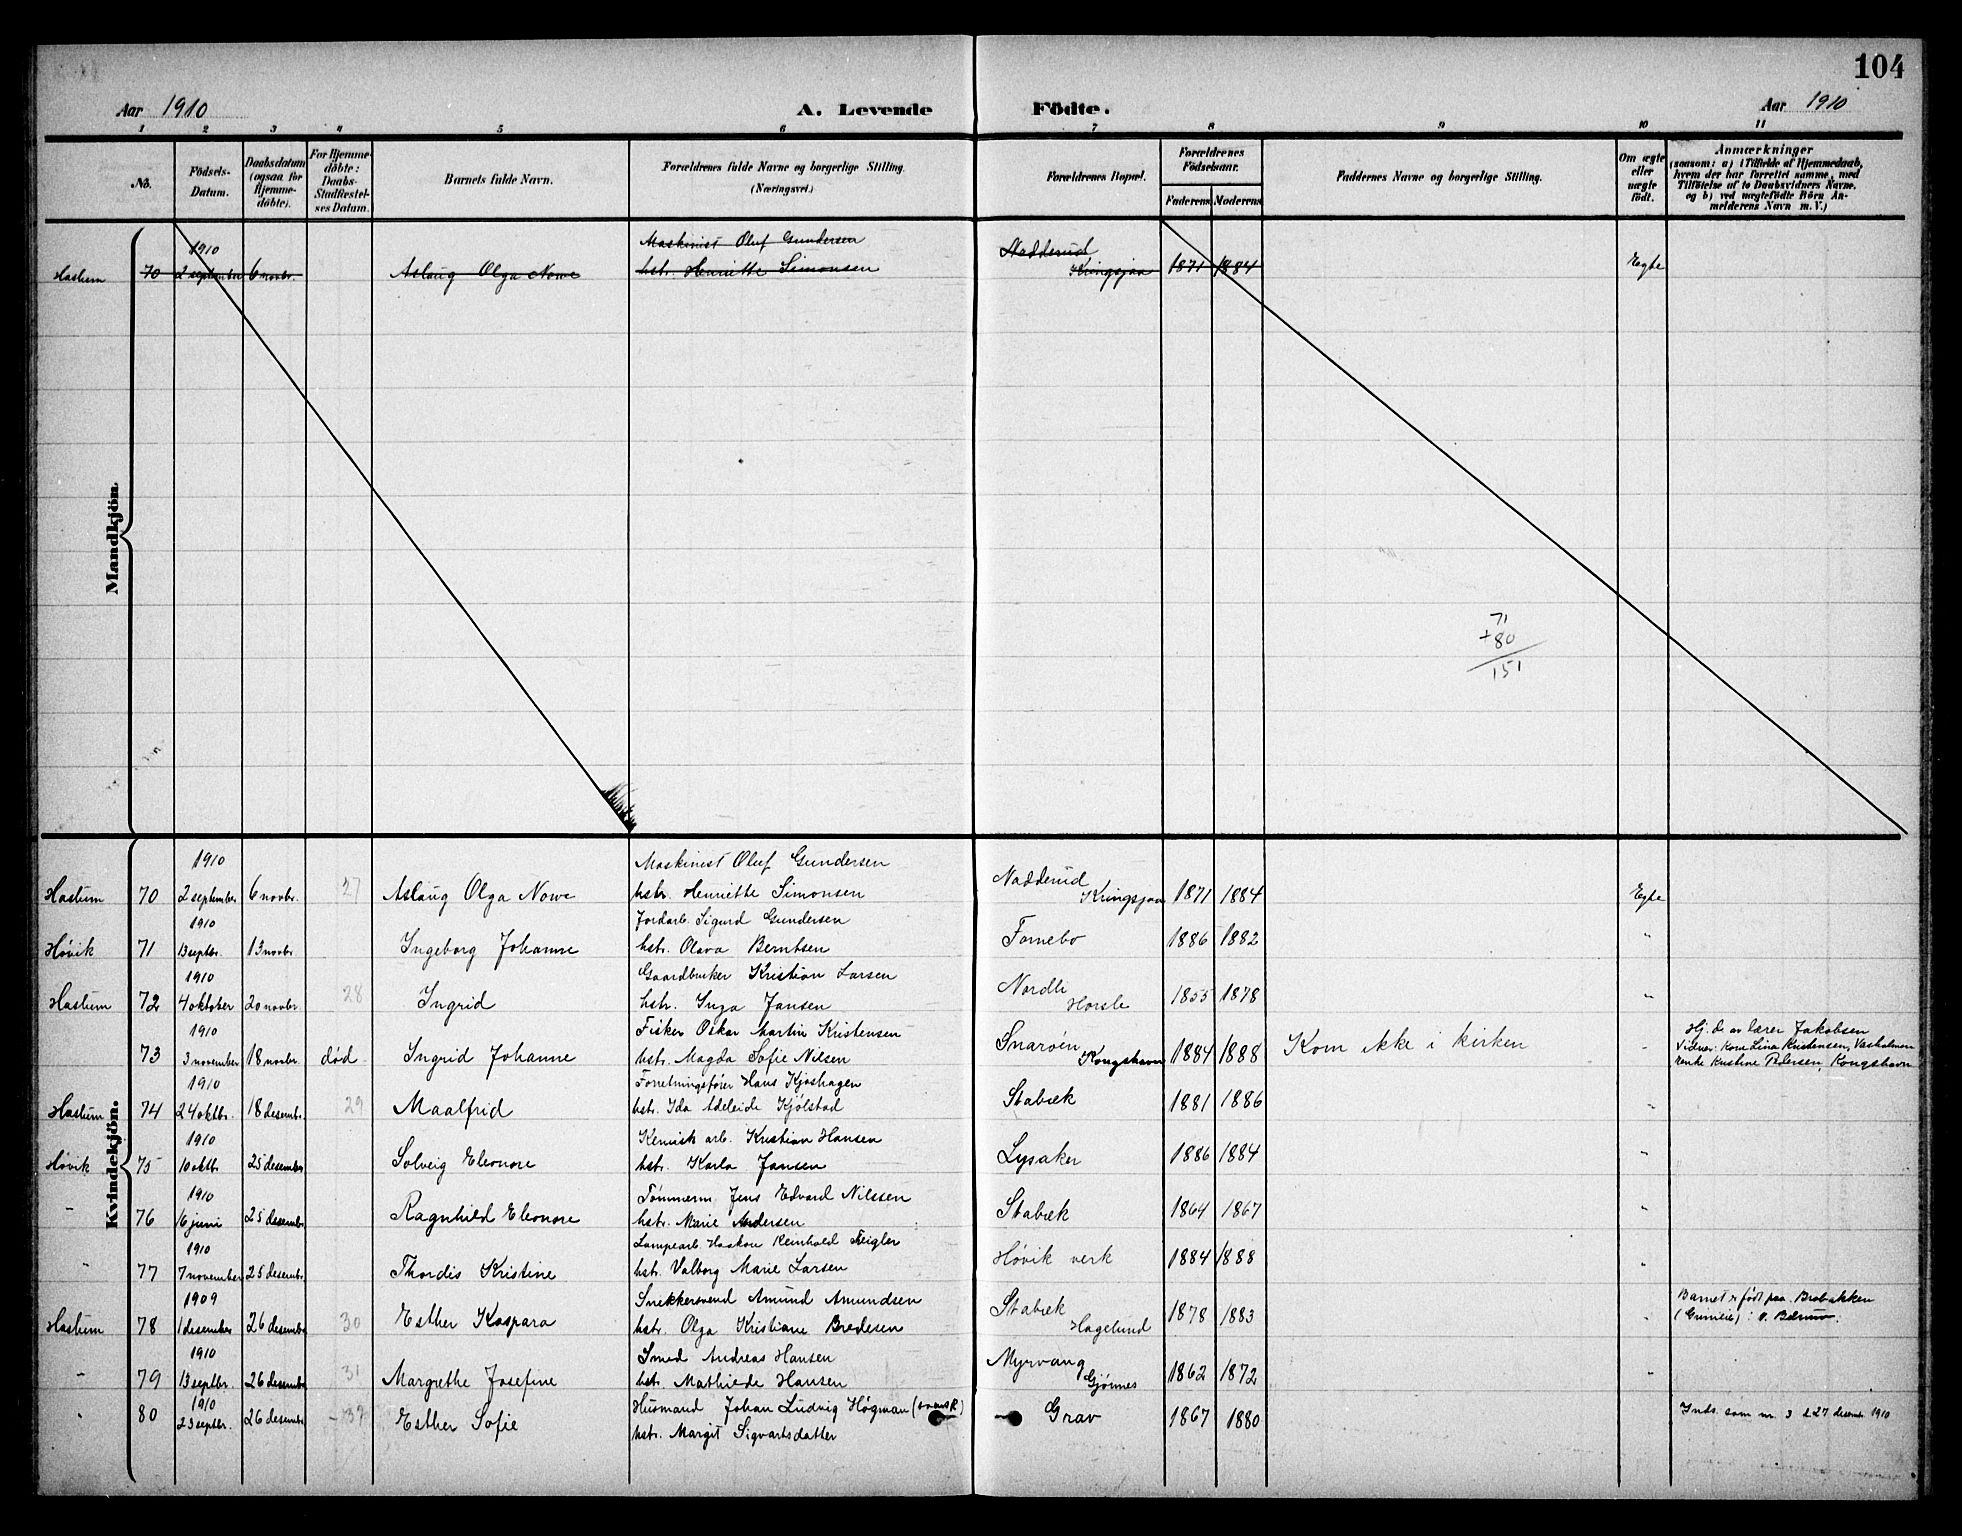 104
Aar 1910 A. Levende Födte. Aar 1910
1 2 3 4 5 6 7 8 9 10 11
No. Födsels-Datum. Daabsdatum (ogsaa for Hjemme-döbte). For Hjemme-döbte: Daabs-Stadfestel-ses Datum. Barnets fulde Navn. Forældrenes fulde Navne og borgerlige Stilling. (Næringsvei.) Forældrenes Bopæl. Forældrenes Födselsaar. Faderens Moderens Faddernes Navne og borgerlige Stilling. Om ægte eller uægte födt. Anmærkninger (saasom: a) i Tilfælde af Hjemmedaab, hvem der har forrettet samme, med Tilföielse af to Daabsvidners Navne, og b) ved uægtefödte Börn An-melderens Navn m. V.)
Mandkjön
1910 Maskinist Oluf Gundersen Nadderud
Haslum 70 2 september 6 novbr. Aslaug Olga Nowe hstr. Henriette Simonsen Kringsjaa 1871 1884 Egte
71
+80
151
Kvindekjön.
1910 Maskinist Oluf Gundersen Nadderud
Haslum 70 2 september 6 novbr. 27 Aslaug Olga Nowe hstr. Henriette Simonsen Kringsjaa 1871 1884 Egte
1910 Jordarb. Sigurd Gundersen
Høvik 71 13 septbr. 13 novbr Ingeborg Johanne hstr. Olava Berntsen Fornebo 1886 1882 "
1910 Gaardbruker Kristian Larsen Nordli
Haslum 72 4 oktober 20 novbr 28 Ingrid hstr. Inga Jansen Horsle 1855 1878 "
1910 Fisker Oskar Martin Kristensen Snarøen Hj. d. av lærer Jakobsen
73 3 november 18 novbr. død Ingrid Johanne hstr. Magda Sofie Nilsen Kongshavn 1884 1888 Kom ikke i kirken " Vidner: Kone Lina Kristensen, Vasholmen
enke Kristine Pedersen, Kongshavn
1910 Forretningsfører Hans Kjoshagen
Haslum 74 24 oktbr. 18 desembr. 29 Maalfrid hstr. Ida Adeleide Kjølstad Stabæk 1881 1886 "
1910 Kemisk arb. Kristian Hansen
Høvik 75 10 oktbr. 25 desember Solveig Eleonore hstr. Karla Jansen Lysaker 1886 1884 "
1910 Tømmerm. Jens Edvard Nilssen
" 76 16 juni 25 desembr. Ragnhild Eleonore hstr. Marie Andersen Stabæk 1864 1867 "
1910 Lampearb. Haakon Reinhold Feigler
" 77 7 november 25 desembr. Thordis Kristine hstr. Valborg Marie Larsen Høvik verk 1884 1888 "
1909 Snekkersvend Amund Amundsen Stabæk Barnet er født paa Brobakken
Haslum 78 1 desember 26 desembr 30 Esther Kaspara hstr. Olga Kristiane Bredesen Hagelund 1878 1883 " (Grinieie) i Ø. Bærum.
1910 Smed Andreas Hansen Myrvang
" 79 13 septbr. 26 desembr 31 Margrethe Josefine hstr. Mathilde Hansen Gjønnes 1862 1872 "
1910 Husmand Johan Ludvig Högman (svensk)
" 80 23 septbr. 26 desembr Esther Sofie hstr. Margit Sigvartsdatter Grav 1867 1880 Inds. som nr. 3 d 27 desembr 1910